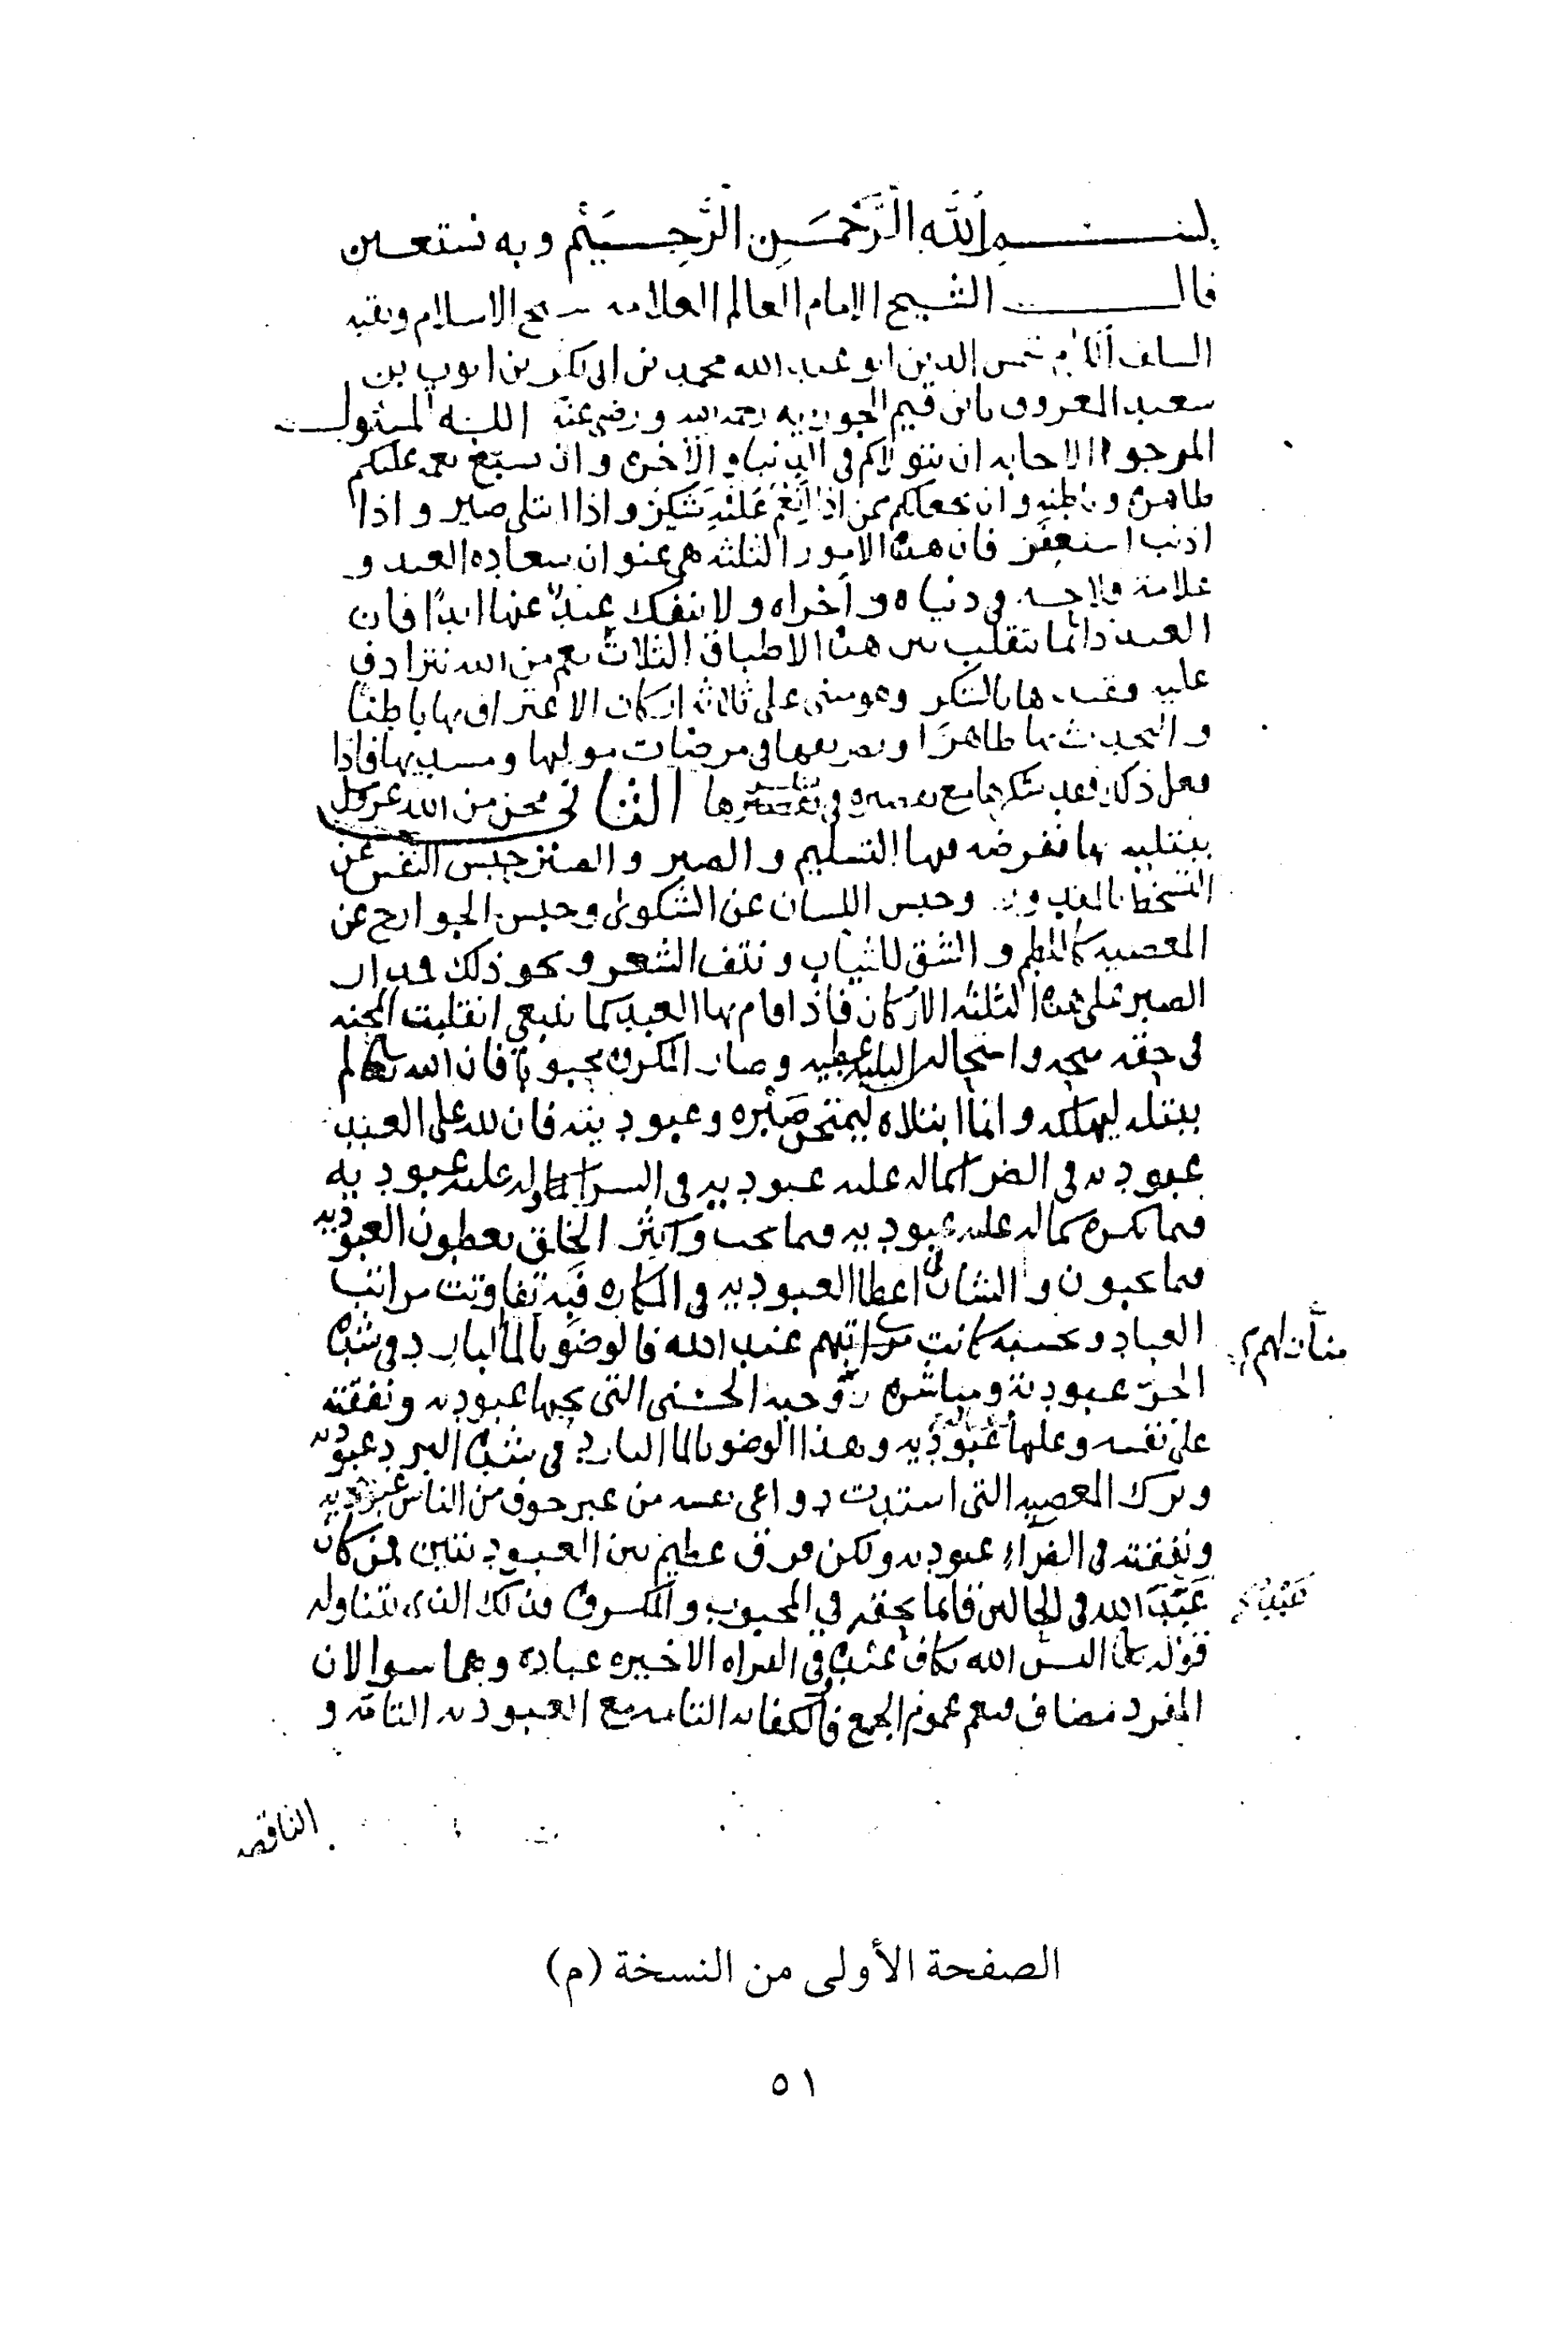 بسم الله الرَّحْمَن الرَّحِيم وبه نستعين
قال الشيخ الامام العالم العلامه شيخ الاسلام وبقيه
السلف الكرام شمس الدين ابو عبد الله محمد بن ابى بكر بن ايوب بن
سعيد المعروف بابن قيم الجوزيه رحمه الله ورضى عنه الله المسئول
المرجو الاجابه ان يتولاكم فى الدنيا والاخرى وان يسبغ نعمه عليكم
ظاهره وباطنه وان يجعلكم ممن اذا أنعم عليه شكر واذا ابتلى صبر واذا
اذنب استغفر فان هذه الامور الثلثه هى عنوان سعاده العبد و
علامة فلاحه فى دنياه وأخراه ولا ينفك عبد عنها ابدًا فان
العبد دائما يتقلب بين هذه الاطباق الثلاث نعم من الله تترادف
عليه فقيدها بالشكر وهو مبنى على ثلاثه اركان الاعتراف بها باطنا
والتحدث بها ظاهرًا وتصريفها فى مرضات موليها ومسديها فاذا
فعل ذلك فقد شكرها مع تقصيره فى شكرها الثانى محن من الله عز وجل
يبتليه بها ففرضه فيها التسليم والصبر والصبر حبس النفس عن
التسخط بالمقدور وحبس اللسان عن الشكوى وحبس الجوارح عن
المعصيه كاللطم والشق للثياب ونتف الشعر ونحو ذلك فمدار
الصبر على هذه الثلثه الاركان فاذا قام بها العبد كما ينبغى انقلبت المحنه
فى حقه منحه واستحاله البليه عطيه وصار المكروه محبوبًا فان الله تعالى لم
يبتله ليهلكه وانما ابتلاه ليمتحن صَبْره وعبوديته فان لله على العبد
عبوديه فى الضرا كماله عليه عبوديه فى السرا وله عليه عبوديه
فيما يكره كماله عليه عبوديه فيما يحب واكثر الخلق يعطون العبوديه
فيما يحبون والشان فى اعطا العبوديه فى المكاره فَبِه تفاوتت مراتب
العباد وبحسبه كانت مراتبهم عند الله فالوضوء بالما البارد فى شده
منازلهم
الحرّ عبودية ومباشره زوجته الحسنى التى يحبها عبوديه ونفقته
على نفسه وعليها عبوديه وهذا الوضو بالما البارد فى شده البرد عبوديه
وترك المعصيه التى اشتدت دواعى نفسه من غير خوف من الناس عبوديه
ونفقته فى الضراء عبوديه ولكن فرق عظيم بين العبوديتين فمن كان
عَبَدَ الله فى الحالين قائما بحقه فى المحبوب والمكروه فذلك الذى يتناوله
قوله تعالى اليس الله بكاف عبده وفى القراه الاخيره عباده وهما سوا لان
المفرد مضاف فيعم عموم الجمع فالكفايه التامه مع العبوديه التامّه و
الناقصه
الصفحة الأولى من النسخة (م)
٥١